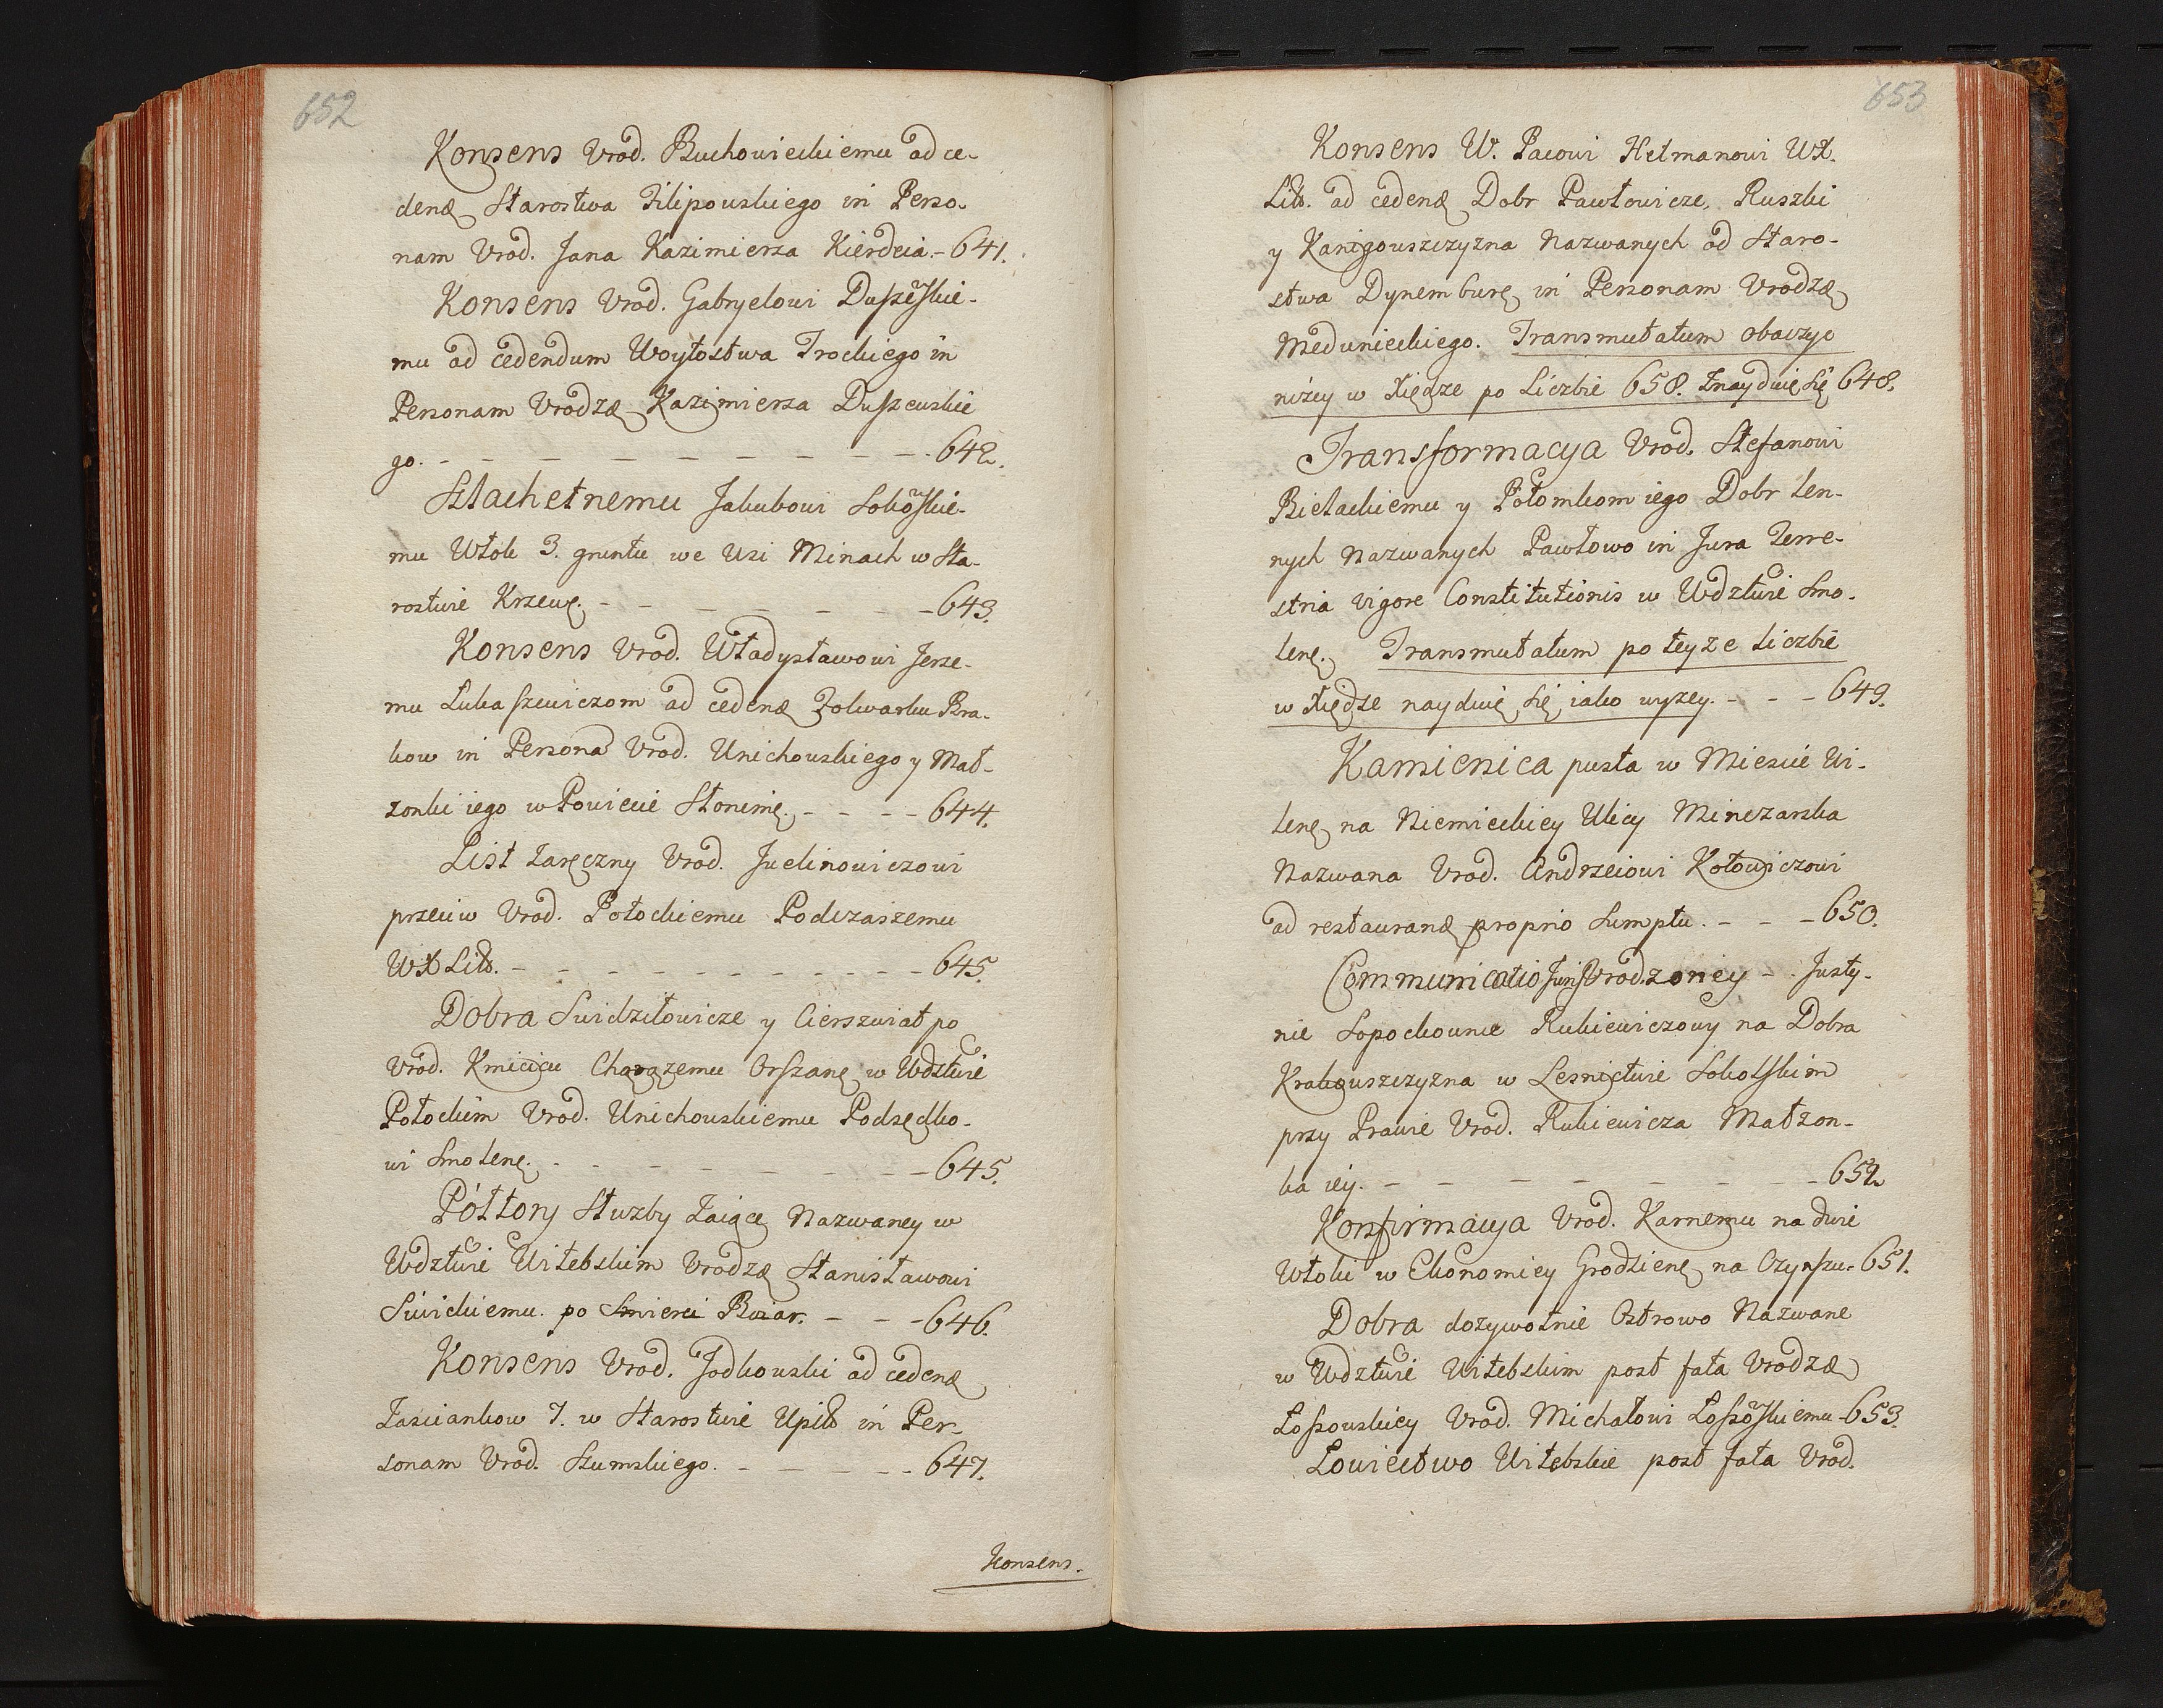 652
Konsens Urod. Buchowieckiemu ad ce-
dend Starostwa Filipowskiego in Perso-
nam Urod. Jana Kazimierza Kierdeia. - 641.
Konsens Urod. Gabryelowi Duszewskie-
mu ad cedendum Woytostwa Trockiego in
Personam Urodzo Kazimierza Duszewskie
go. - - - - - - - - - 642.
Szlachetnemu Jakubowi Sokolskie-
mu Włok 3. gruntu we Wsi Minach w Sta-
rostwie Krzew. - - - - - - 643.
Konsens Urod. Władysławowi Jerze-
mu Lukaszewiczom ad cedend Folwarku Bra-
kow in Persona Urod. Unichowskiego y Mał-
zonki iego w Powiecie Słonim. - - - - 644.
List Zaręczny Urod. Juelinowiczowi
przeciw Urod. Potockiemu Podczaszemu
WX Litt. - - - - - - - - - 645.
Dobra Swidziłowicze y Cierszwiat po
Urod. Kmicicu Chorązemu Orszan w Wdztwie
Połockim Urod. Unichowskiemu Podsędko-
wi Smolen. - - - - - - - 645.
Półtory Służby Zaiące Nazwaney w
Wdztwie Witebskim Urodzo Stanisławowi
Swickiemu. po Smierci Boiar. - - - 646.
Konsens Urod. Jodkowski ad cedend
Zasciankow 7. w Starostwie Upitt in Per-
sonam Urod. Szumskiego. - - - - - 647.
Konsens.
653
Konsens W. Pacowi Hetmanowi WX.
Litt. ad cedend Dobr Pawłowicze, Ruszki
y Kanigowszczyzna Nazwanych od Staro-
stwa Dynembure in Personam Urodzo
Medunieckiego. Transmutatum obaczyc
niżey w Xiędze po Liczbie 658. Znayduie Się 648.
Transformacya Urod. Stefanowi
Bielackiemu y Potomkom iego Dobr Len-
nych Nazwanych Pawłowo in Jura Terre-
stria vigore Constitutionis w Wdztwie Smo-
len. Transmutatum po teyze Liczbie
w Xiędze nayduie się iako wyzey. - - - 649.
Kamienica pusta w Miescie Wi-
len na Niemieckiey Ulicy Minczarska
Nazwana Urod. Andrzeiowi Kotowiczowi
ad restaurand proprio Sumptu. - - - 650.
Communicatio Juris Urodzoney - Justy-
nie Sopockownie Rukiewiczowy na Dobra
Krakowszczyzna w Lesnictwie Sokolskim
przy Prawie Urod. Rukiewicza Małzon-
ka iey. - - - - - - - 652.
Konfirmacya Urod. Karnemu na dwie
Włoki w Ekonomiey Grodzien na Czynszu - 651.
Dobra dozywotnie Ostrowo Nazwane
w Wdztwie Witebskim post fata Urodzo
Łossowskiey Urod. Michałowi Łossowskiemu - 653.
Łowiectwo Witebskie post fata Urod.